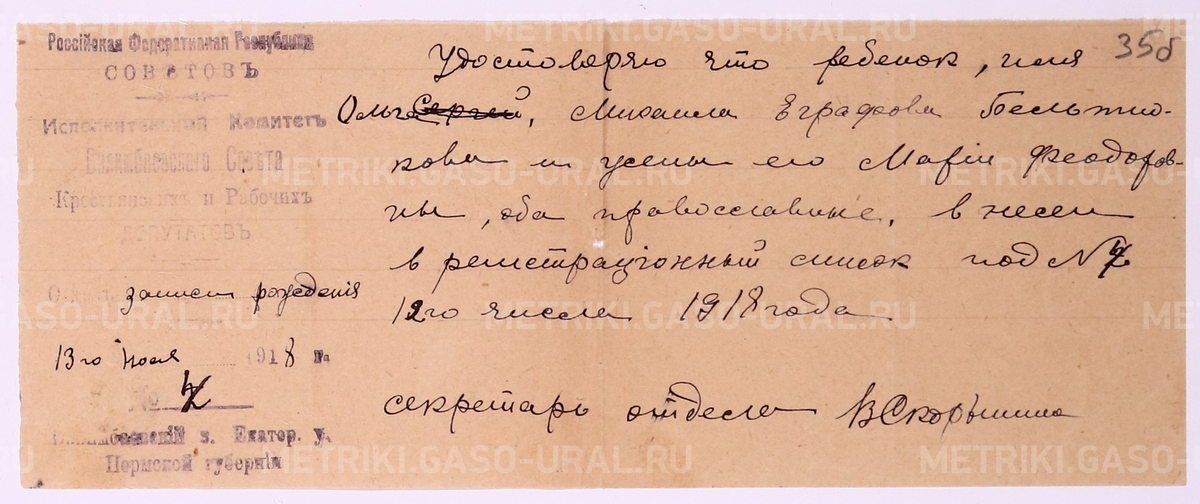 Россійская Федеративная Республика
СОВѢТОВЪ
Исполнительный Комитетъ
Билимбаевского Совѣта
Крестьянскихъ и Рабочихъ
ДЕПУТАТОВЪ
записи рожденія
13го Ноя 1918 г.
№
Билимбаевскій з. Екатер. у.
Пермской губерніи
356
Удостоверяю что ребенок, имя
Ольга Сергей, Михаила Еграфова
и жены его Маріи Феодоров-
ны, оба православные, внесен
в регистраціонный список под №
12го числа 1918 года
секретарь отдела
METRIKI.GASO-URAL.RU